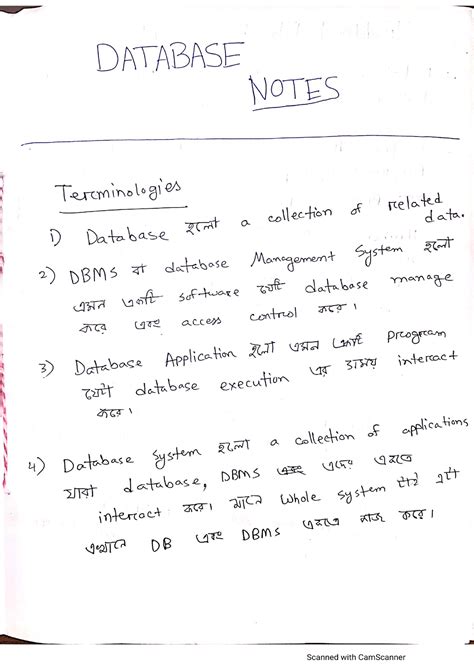 DATABASE
NOTES
Terminologies
1) Database হলো a collection of related
data.
2) DBMS বা database Management System হলো
এমন একটি software যেটি database manage
করে এবং access control করে।
3) Database Application হলো এমন একটি program
যেটা database execution এর সময় interact
করে।
4) Database System হলো a collection of applications
যারা database, DBMS এবং একসাথে
interact করে। মানে whole system টাই এটা
এখানে DB এবং DBMS একসাথে কাজ করে।
Scanned with CamScanner